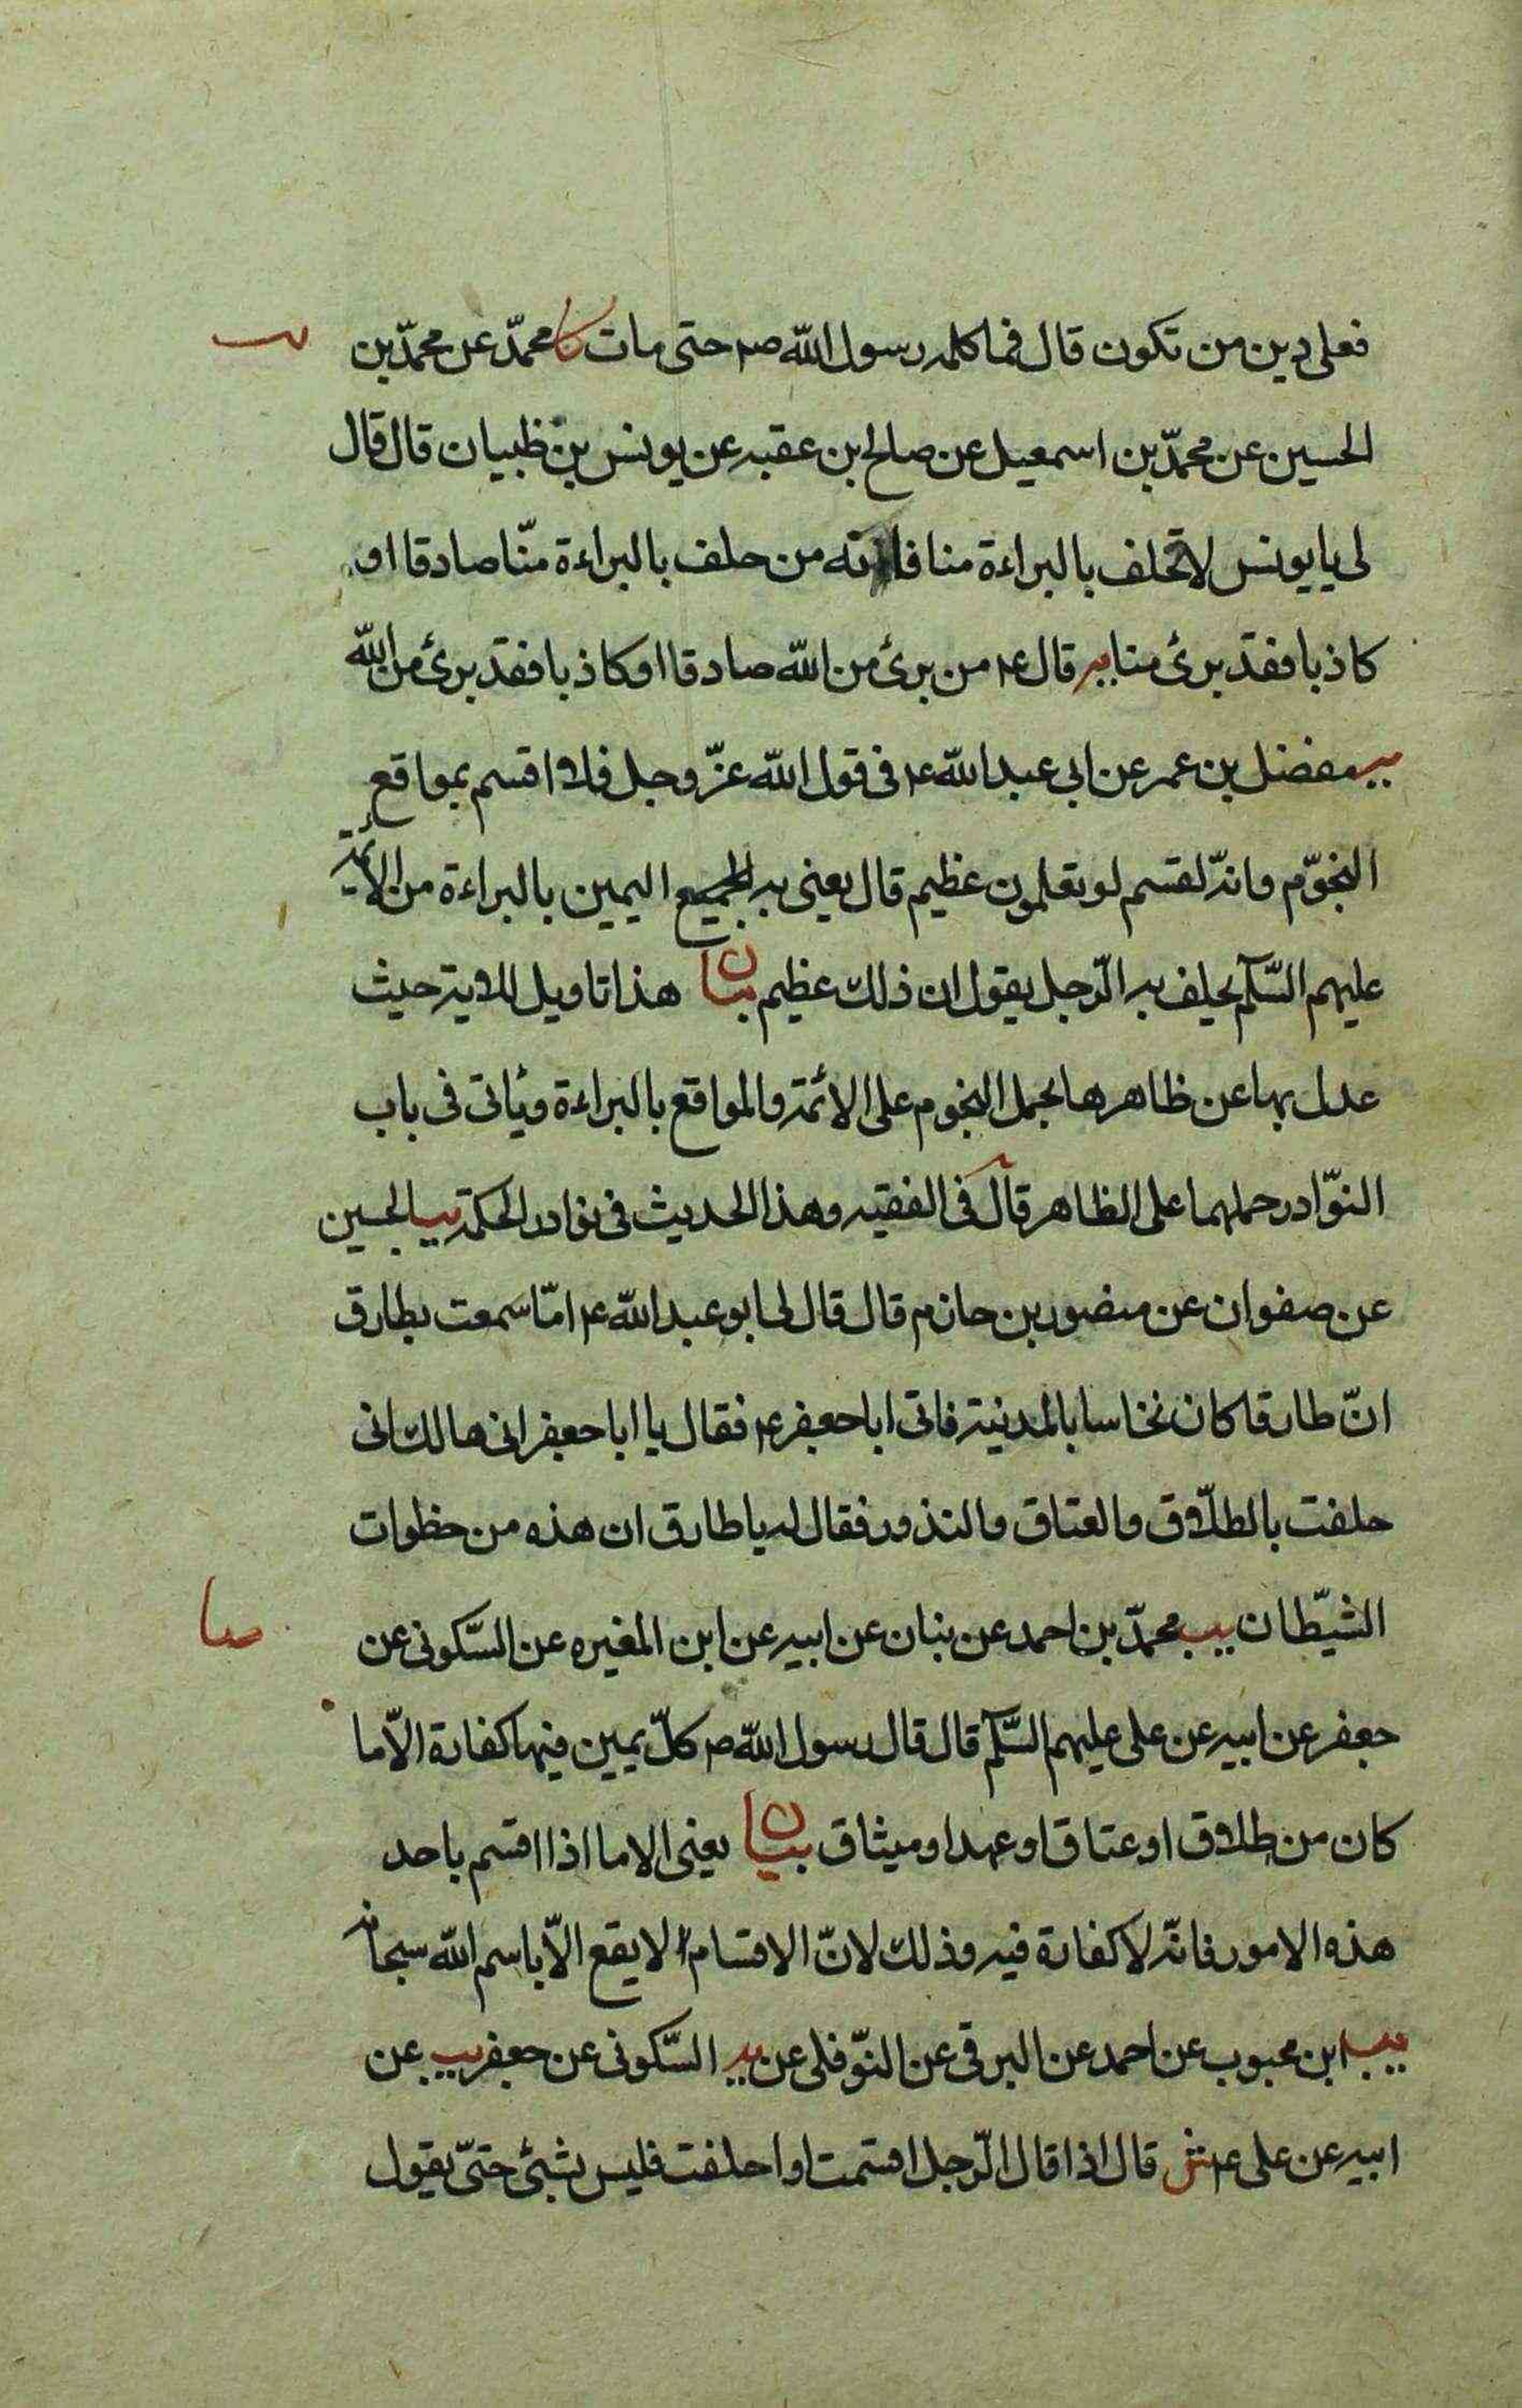 فعلى دين من تكون قال فما كلمه رسول الله ص حتى مات كا محمّد عن محمّد بن
الحسين عن محمّد بن اسمعيل عن صالح بن عقبه عن يونس بن ظبيان قال قال
لى يا يونس لا تحلف بالبراءة منا فانه من حلف بالبراءة منّا صادقا او
كاذبا فقد برئ منا يه قال ع من برئ من الله صادقا او كاذبا فقد برئ من الله
يب مفضل بن عمر عن ابى عبد الله ع فى قول الله عزّ وجل فلا اقسم بمواقع
النجوّم وانّه لقسم لو تعلمون عظيم قال يعنى به اليمين بالبراءة من الأئمة
عليهم السّلم يحلف به الرّجل يقول ان ذلك عظيم بيان هذا تاويل للاية حيث
عدل بها عن ظاهرها بحمل النجوم على الائمّة والمواقع بالبراءة وياتى فى باب
النوّادر حملهما على الظاهر قال فى الفقيه وهذا الحديث فى نوادر الحكمة يب الحسين
عن صفوان عن منصور بن حازم قال قال لى ابو عبد الله ع امّا سمعت بطارق
انّ طارقا كان نخاسا بالمدينة فاتى ابا جعفر ع فقال يا ابا جعفر انى هالك انى
حلفت بالطلّاق والعتاق والنذور فقال له يا طارق ان هذه من خطوات
الشيّطان يب محمّد بن احمد عن بنان عن ابيه عن ابن المغيره عن السّكونى عن
جعفر عن ابيه عن على عليهم السّلم قال قال رسول الله ص كلّ يمين فيها كفارة الاّ ما
كان من طلاق او عتاق او عهد او ميثاق بيان يعنى الا ما اذا اقسم باحد
هذه الامور فانّه لا كفارة فيه وذلك لانّ الاقسام لا يقع الاّ باسم الله سبحانه
يب ابن محبوب عن احمد عن البرقى عن النوّفلى عن يه السّكونى عن جعفر يب عن
ابيه عن على ع ش قال اذا قال الرّجل اقسمت او احلفت فليس بشئ حتىّ يقول